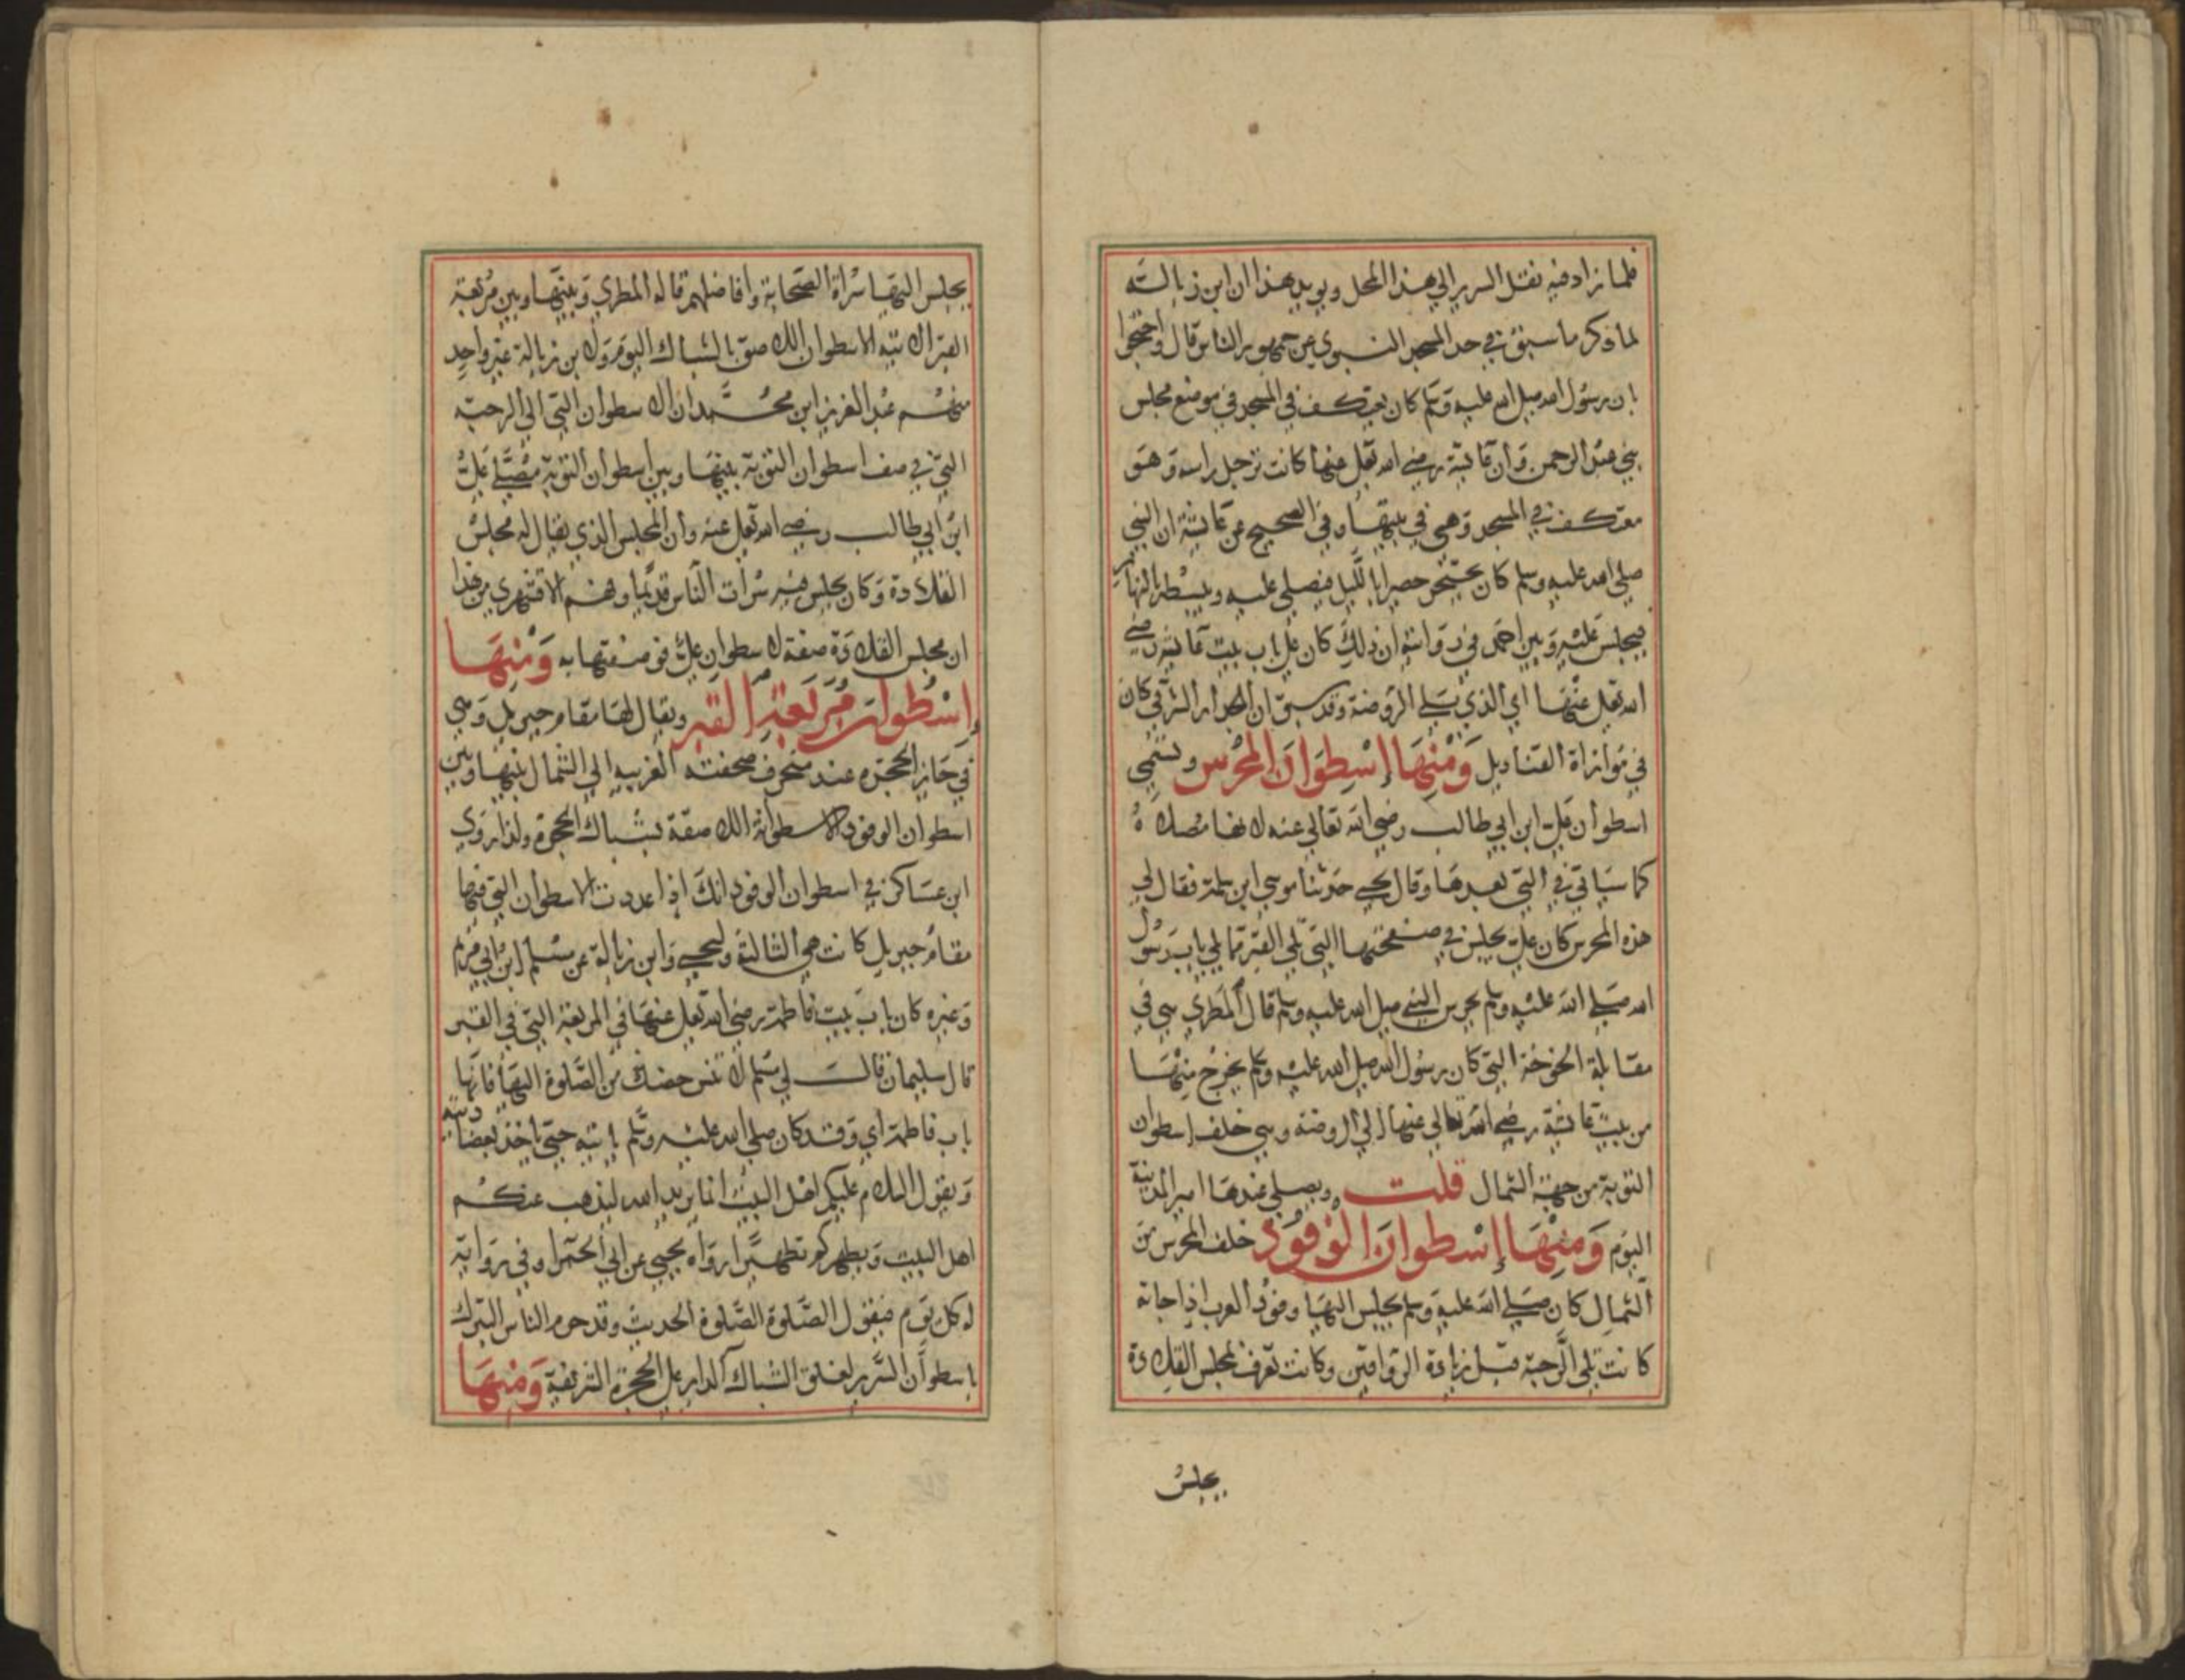 فلما زاد فيه نقل السرير الي هذا المحل ويويد هذا ان ابن زبالته
لما ذكر ما سبق في حد المسجد النبوي عن جمهور الناس قال واحتجوا
بان رسول الله صلي الله عليه وسلم كان يعتكف في المسجد في موضع مجلس
بني عبد الرحمن وان عائشة رضي الله تعالى عنها كانت ترجل راسه وهو
معتكف في المسجد وهي في بيتها وفي الصحيح عن عائشة ان النبي
صلي الله عليه وسلم كان يحتجر حصيرا بالليل فيصلي عليه ويبسطه بالنهار
فيجلس عليه وبين احمد في روايته ان ذلك كان علي باب بيت عائشة رضي
الله تعالى عنها اي الذي يلي الروضة وقد سبق ان الجدار الشرقي كان
في موازاة القناديل وَمنها إسطوان المحرس وتسمي
اسطوان علي ابن ابي طالب رضي الله تعالي عنه لانها مصلاه
كما سياتي في التي بعدها وقال يحيي حدثنا موسي ابن سلمة فقال لي
هذه المحرس كان علي يجلس في صفحتها التي تلي القبر مما يلي باب رسول
الله صلي الله عليه وسلم يحرس النبي صلي الله عليه وسلم قال المطري هي في
مقابلة الخوخة التي كان رسول الله صلي الله عليه وسلم يخرج منها
من بيت عائشة رضي الله تعالي عنها الي الروضة وهي خلف اسطوان
التوبة من جهة الشمال قلت ويصلي عندها امير المدينة
اليوم وَمنها إسطوان الوفود خلف المحرس من
الشمال كان صلي الله عليه وسلم يجلس اليها وفود العرب اذا جاته
كانت تلي الرحبة قبل زيادة الرواقين وكانت تعرف بمجلس القلادة
يجلس
يجلس اليها سراة الصحابة وافاضلهم قاله المطري وبينها وبين مربعة
القبر الاتيه الاسطوان اللاصق بالشباك اليوم ولابن زبالة عن غير واحد
منهم عبد العزيز ابن محمد ان الاسطوان التي الي الرحبه
التي في صف اسطوان التوبة بينها وبين اسطوان التوبة مصلي علي
ابن ابي طالب رضي الله تعالى عنه وان المجلس الذي يقال له مجلس
القلادة وكان يجلس فيه سرات الناس قديما وفهم الاقشهري من هذا
ان مجلس القلادة صفة لاسطوان علي فوصفها به وَمنها
إسطوان مربعة القبر ويقال لها مقام جبريل وهي
في حايز الحجره عند منحرف صفحته الغربيه الي الشمال بينها وبين
اسطوان الوفود الاسطوانة اللاصقة بشباك الحجرة ولذا روي
ابن عساكر في اسطوان الوفود انك اذا عددت الاسطوان التي فيها
مقام جبريل كانت هي الثالثة وليحيي وابن زبالة عن مسلم ابن ابي مريم
وغيره كان باب بيت فاطمة رضي الله تعالى عنها في المربعة التي في القبر
قال سليمان قال لي مسلم لا تنس حظك من الصلوة اليها فانها
باب فاطمة اي وقد كان صلي الله عليه وسلم ياتيه حتي ياخذ بعضادتيه
ويقول السلام عليكم اهل البيت انما يريد الله ليذهب عنكم
اهل البيت ويطهركم تطهيرا رواه يحيي عن ابي الحمرا وفي رواية
له كل يوم فيقول الصلوة الصلوة الحديث وقد حرم الناس التبرك
باسطوان السرير لغلق الشباك الداير علي الحجرة الشريفة وَمنها